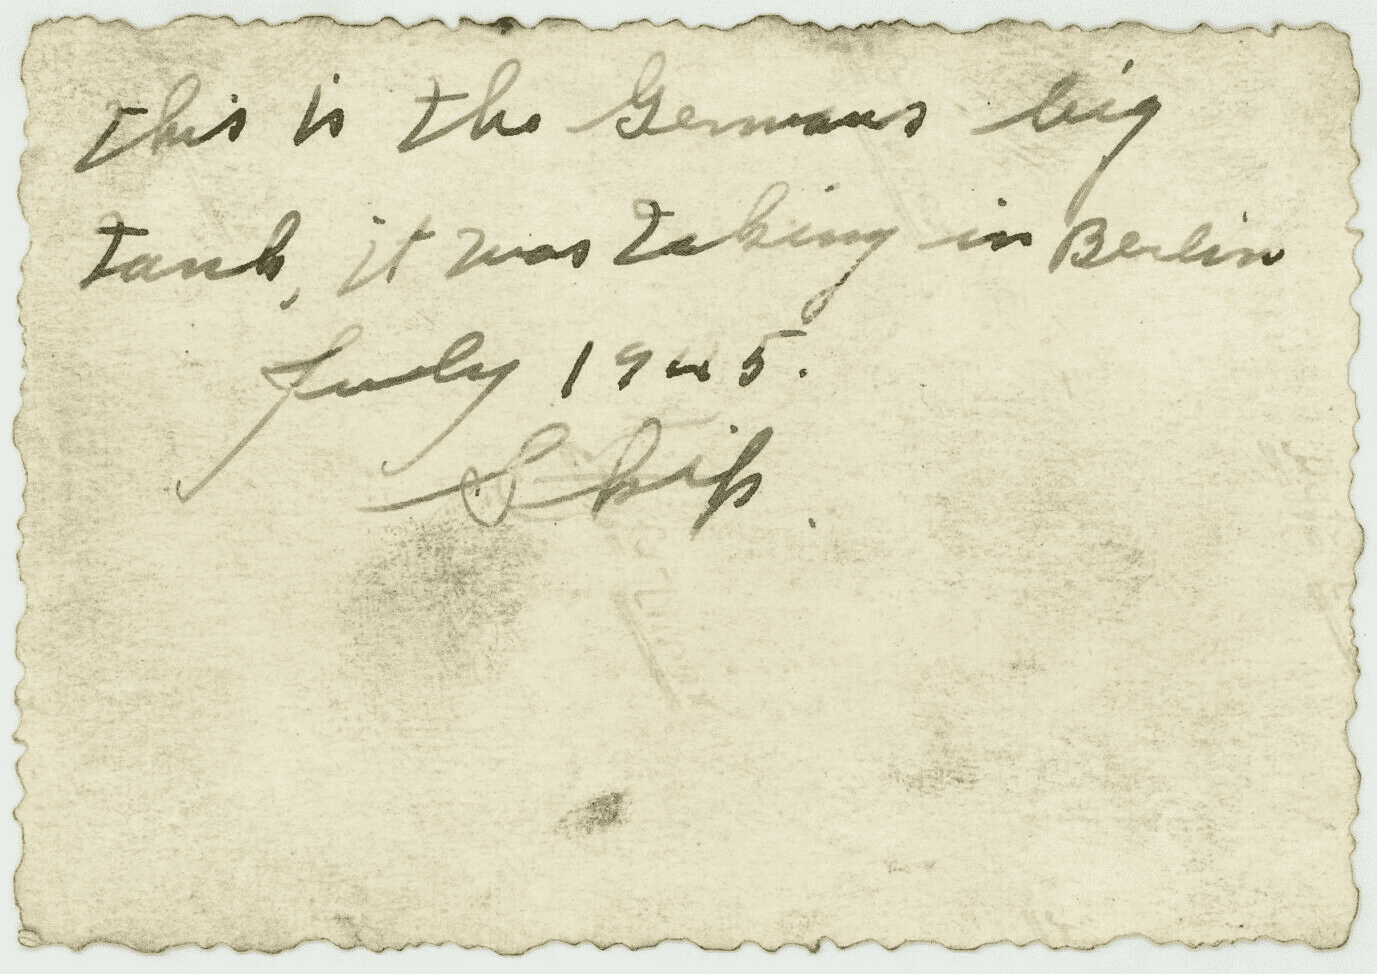 this is the Germans big
tank, it was taking in Berlin
July 1945.
Skip.